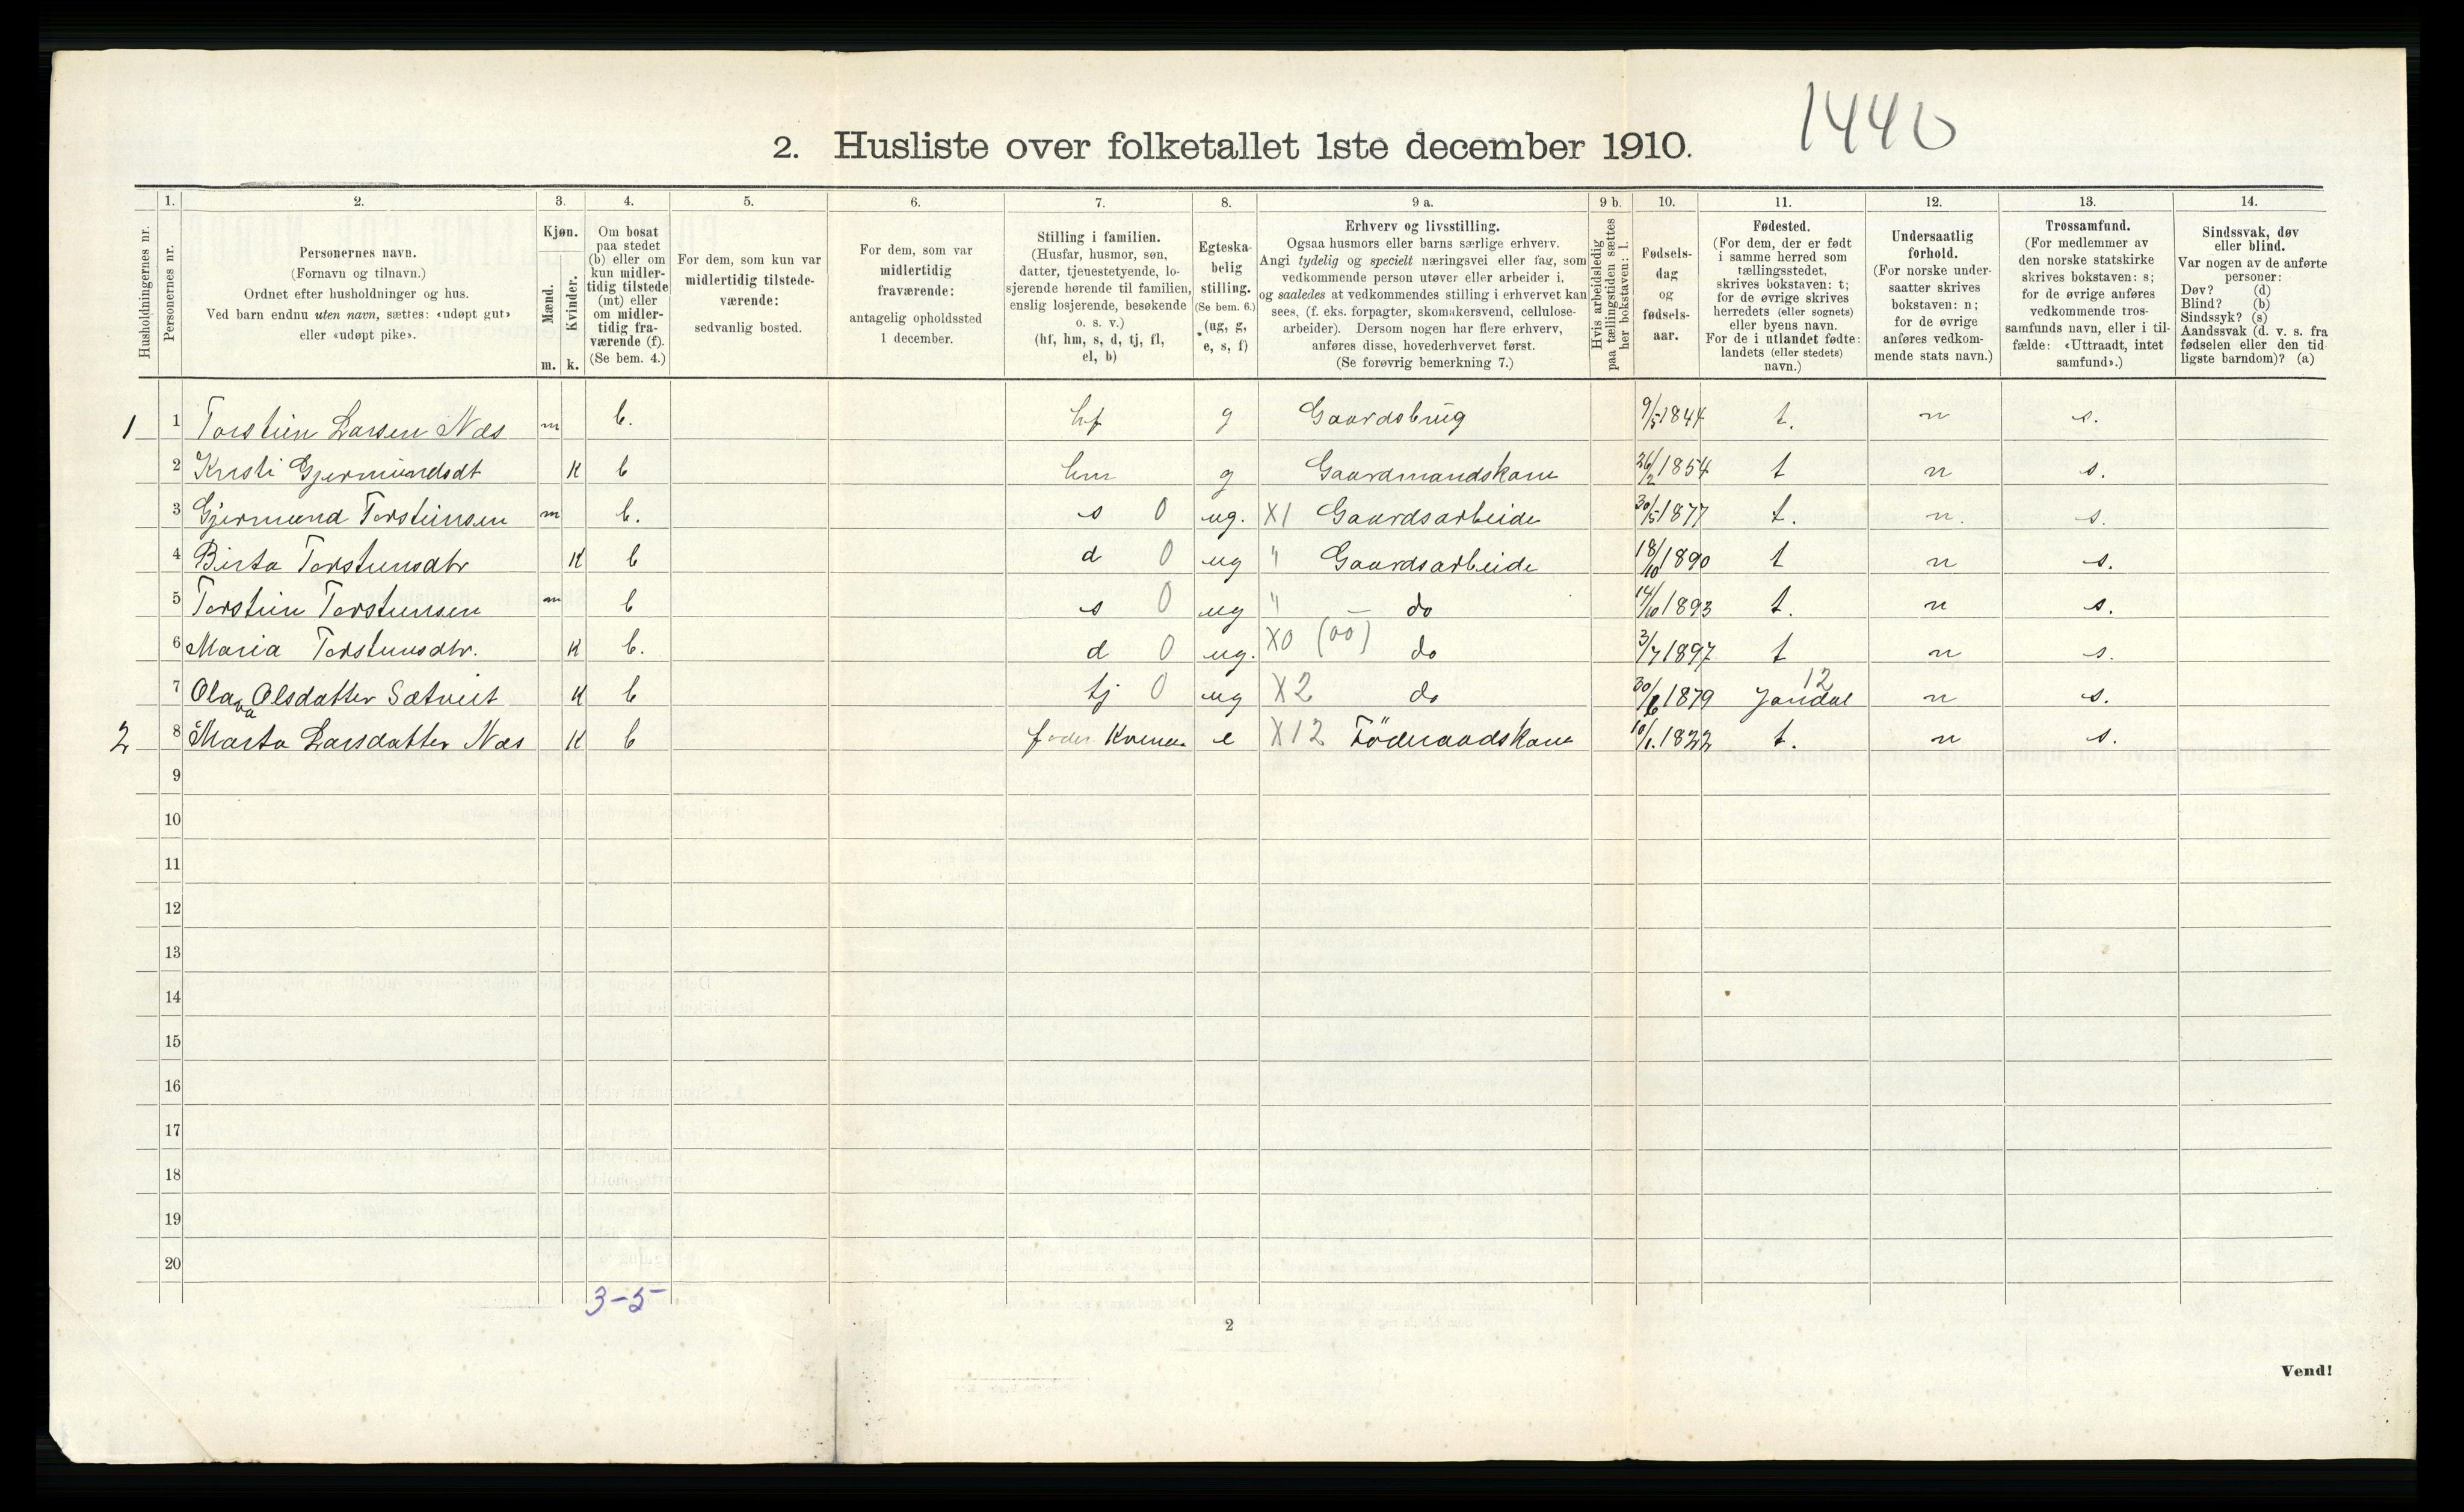 1440
2. Husliste over folketallet 1ste december 1910.
Husholdningernes nr.
1.
Personernes nr.
2.
Personernes navn.
(Fornavn og tilnavn.)
Ordnet efter husholdninger og hus.
Ved barn endnu uten navn, sættes: «udøpt gut»
eller «udøpt pike».
3.
Kjøn.
Mænd.
Kvinder.
m. k.
4.
Om bosat
paa stedet
(b) eller om
kun midler-
tidig tilstede
(mt) eller
om midler-
tidig fra-
værende (f).
(Se bem. 4.)
5.
For dem, som kun var
midlertidig tilstede-
værende:
sedvanlig bosted.
6.
For dem, som var
midlertidig
fraværende:
antagelig opholdssted
1 december.
7.
Stilling i familien.
(Husfar, husmor, søn,
datter, tjenestetyende, lo-
sjerende hørende til familien,
enslig losjerende, besøkende
o. s. v.)
(hf, hm, s, d, tj, fl,
el, b)
8.
Egteska-
belig
stilling.
(Se bem. 6.)
(ug, g,
e, s, f)
9 a.
Erhverv og livsstilling.
Ogsaa husmors eller barns særlige erhverv.
Angi tydelig og specielt næringsvei eller fag, som
vedkommende person utøver eller arbeider i,
og saaledes at vedkommendes stilling i erhvervet kan
sees, (f. eks. forpagter, skomakersvend, cellulose-
arbeider). Dersom nogen har flere erhverv,
anføres disse, hovederhvervet først.
(Se forøvrig bemerkning 7.)
9 b.
Hvis arbeidsledig
paa tællingstiden sættes
her bokstaven: l.
10.
Fødsels-
dag
og
fødsels-
aar.
11.
Fødested.
(For dem, der er født
i samme herred som
tællingsstedet,
skrives bokstaven: t;
for de øvrige skrives
herredets (eller sognets)
eller byens navn.
For de i utlandet fødte:
landets (eller stedets)
navn.)
12.
Undersaatlig
forhold.
(For norske under-
saatter skrives
bokstaven: n;
for de øvrige
anføres vedkom-
mende stats navn.)
13.
Trossamfund.
(For medlemmer av
den norske statskirke
skrives bokstaven: s;
for de øvrige anføres
vedkommende tros-
samfunds navn, eller i til-
fælde: «Uttraadt, intet
samfund».)
14.
Sindssvak, døv
eller blind.
Var nogen av de anførte
personer:
Døv? (d)
Blind? (b)
Sindssyk? (s)
Aandssvak (d. v. s. fra
fødselen eller den tid-
ligste barndom)? (a)
1 1 Torstein Larsen Næs m b. hf g Gaardsbrug 9/5 1844 t. n s.
2 Kristi Gjermundsdt K b hm g Gaardmandskone 26/2 1854 t n s.
3 Gjermund Torsteinsen m b. s 0 ug. X1 Gaardsarbeide 30/5 1877 t. n. s.
4 Birta Torsteinsdtr K b d 0 ug " Gaardsarbeide 18/10 1890 t n s.
5 Torstein Torsteinsen m b s 0 ug " — do 14/10 1893 t. n s.
6 Maria Torsteinsdtr. K b. d 0 ug. X0 (00) do 3/7 1897 t n s.
7 Olava Olsdatter Sætveit K b tj 0 ug X2 do 30/6 1879 Jondal 12 n s.
2 8 Marta Larsdatter Næs K b foder Kvena e X12 Föderaadskone 10/1. 1822 t. n s.
9
10
11
12
13
14
15
16
17
18
19
20
3-5
2
Vend!